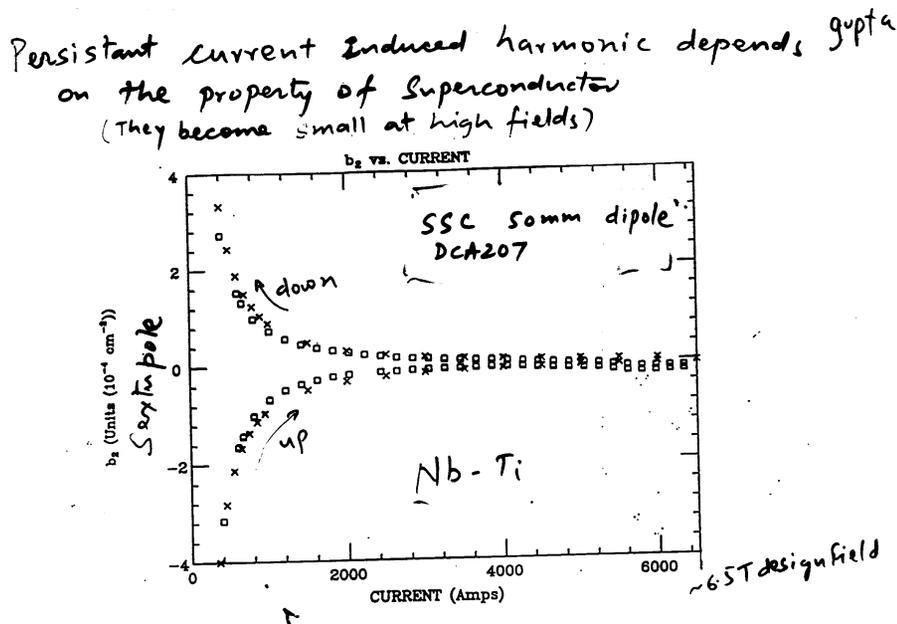 Persistant current Induced harmonic depends gupta
on the property of Superconductor
(They become small at high fields)
b₂ vs. CURRENT
SSC 50mm dipole
DCA207
down
up
Nb-Ti
b₂ (Units (10⁻⁴ cm⁻²))
Sextupole
4
2
0
-2
-4
0 2000 4000 6000
CURRENT (Amps)
~6.5T design field